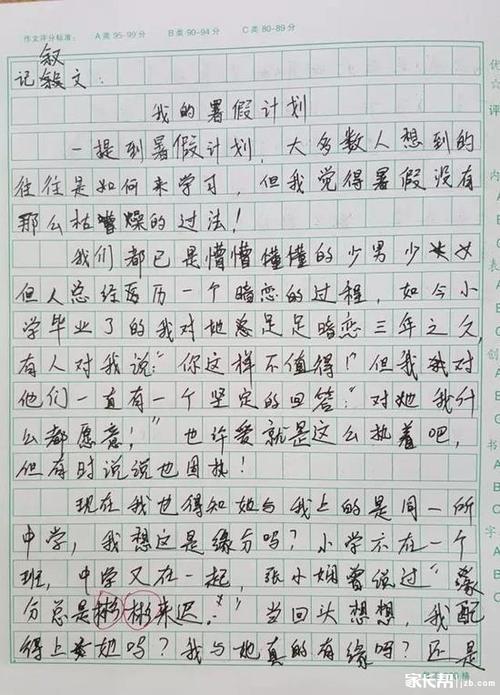 作文评分标准： A类 95-99分 B类 90-94分 C类 80-89分
叙
记叙文：
我的暑假计划
一提到暑假计划，大多数人想到的
往往是如何来学习，但我觉得暑假没有
那么枯燥的过法！
我们都已是懵懵懂懂的少男少女
但人总经历一个暗恋的过程，如今小
学毕业了的我对她足足暗恋三年之久，
有人对我说："你这样不值得！"但我对
他们一直有一个坚定的回答："对她我什
么都愿意！"也许爱就是这么执着吧，
但有时说说也固执！
现在我也得知她与我上的是同一所
中学，我想这是缘分吗？小学不在一个
班，中学又在一起，张小娴曾说过"缘
分总是彬彬来迟。"当回头想想，我配
得上她吗？我与她真的有缘吗？还是
优
☆
评
内
表
创
书
字
家长帮 jzb.com